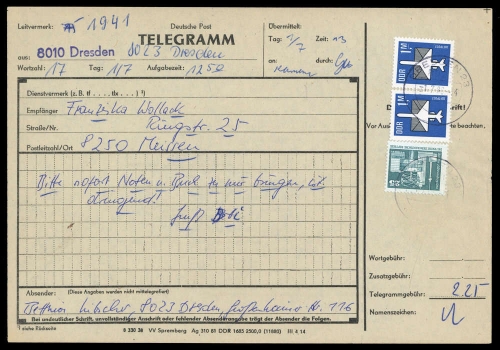 Leitvermerk: 1941
Deutsche Post
TELEGRAMM
Übermittelt:
Tag: 1/7 Zeit: 13
aus: 8010 Dresden 8023 Dresden
an: durch:
Wortzahl: 17 Tag: 1/7 Aufgabezeit: 1250
Dienstvermerk (z. B. tf ... tlx ... )
Empfänger Franziska Wollack
Straße/Nr. Ringstr. 25
Postleitzahl/Ort 8250 Meißen
Bitte sofort Noten u. Buch zu mir bringen, ist
dringend!
Gruß
Absender: (Diese Angaben werden nicht mittelegrafiert)
8023 Dresden, Großenhainer Str. 116
Bei undeutlicher Schrift, unvollständiger Anschrift oder fehlender Absenderangabe trägt der Absender die Folgen.
siehe Rückseite
VV Spremberg Ag 310 81 DDR III 4 14
1M
DDR
1M
DDR
Vor Aus
beachten.
Wortgebühr:
Zusatzgebühr:
Telegrammgebühr: 2.25
Namenszeichen: